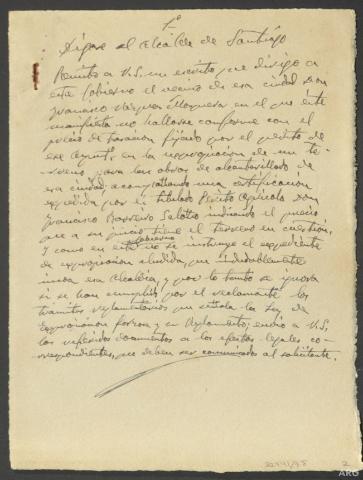 1º
Dígase al Alcalde de Santiago
Remito a V.S. un escrito que dirige a
este Gobierno el vecino de esa ciudad Don
Francisco Vázquez en el que éste
manifiesta no hallarse conforme con el
precio de tasación fijado por el perito de
ese Aynt. en la expropiación de un te-
rreno para las obras de alcantarillado de
esa ciudad, acompañando una certificación
expedida por el titulado Perito Agrícola Don
Francisco Barreiro indicando el precio
que a su juicio tiene el terreno en cuestión.
Y como en este Gobierno no se instruye el expediente
de expropiación aludida, que indudablemente
incoa esa Alcaldía, y por lo tanto se ignora
si se han cumplido por el reclamante los
trámites reglamentarios que señala la Ley de
Expropiación forzosa y su Reglamento; envío a V.S.
los referidos documentos a los efectos legales co-
rrespondientes, que deben ser comunicados al solicitante.
2
ARG